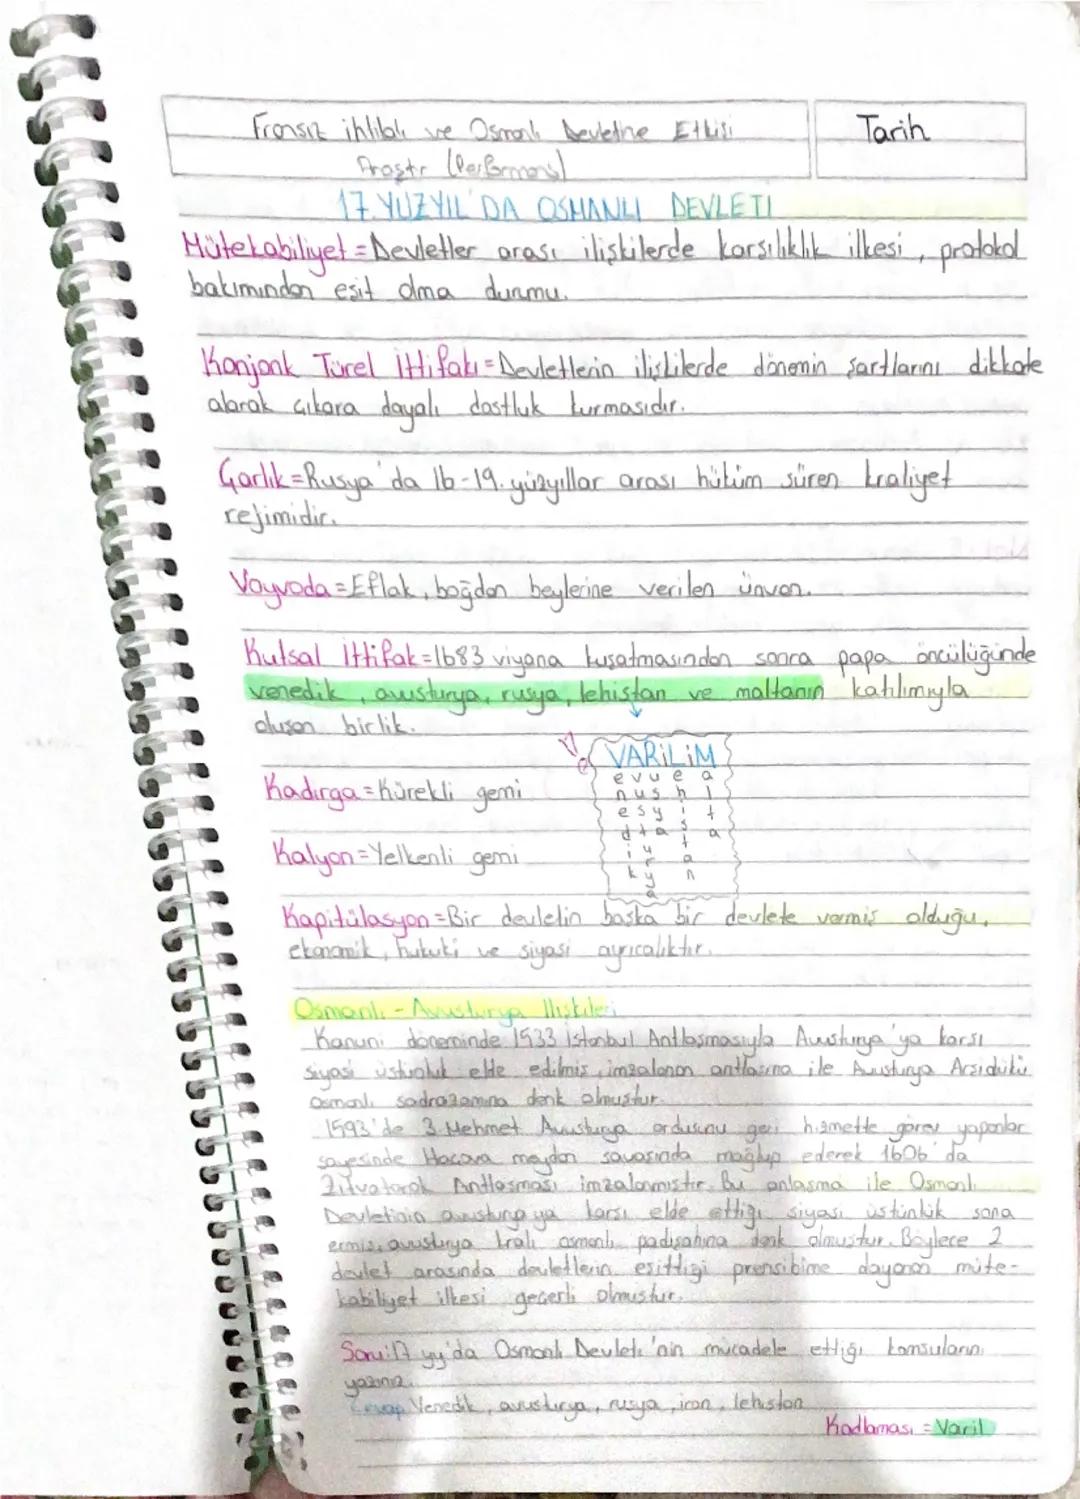 Fransız ihtilalı ve Osmanlı Devletine Etkisi
Tarih
Araştr (Performans)
17. YÜZYIL'DA OSMANLI DEVLETİ
Mütekabiliyet = Devletler arası ilişkilerde karşılıklık ilkesi, protokol
bakımından eşit olma durumu.
Konjonk Türel İttifakı = Devletlerin ilişkilerde dönemin şartlarını dikkate
alarak çıkara dayalı dostluk kurmasıdır.
Çarlık = Rusya'da 16-19. yüzyıllar arası hüküm süren kraliyet
rejimidir.
Voyvoda = Eflak, boğdan beylerine verilen ünvan.
Kutsal İttifak = 1683 viyana kuşatmasından sonra papa öncülüğünde
venedik, avusturya, rusya, lehistan ve maltanın katılımıyla
oluşan birlik.
VARİLİM
e v u e a
n u s h l
e s y i t
d t a s a
i u t
k r a
y n
a
Kadırga = Kürekli gemi
Kalyon = Yelkenli gemi
Kapitülasyon = Bir devletin başka bir devlete vermiş olduğu,
ekonomik, hukuki ve siyasi ayrıcalıktır.
Osmanlı - Avusturya İlişkileri
Kanuni döneminde 1533 İstanbul Antlaşmasıyla Avusturya'ya karşı
siyasi üstünlük elde edilmiş, imzalanan antlaşma ile Avusturya Arşidükü
osmanlı sadrazamına denk olmuştur.
1593'de 3. Mehmet Avusturya ordusunu geri hizmette görev yapanlar
sayesinde Haçova meydan savaşında mağlup ederek 1606'da
Zitvatorok Antlaşması imzalanmıştır. Bu anlaşma ile Osmanlı
Devletinin avusturya ya karşı elde ettiği siyasi üstünlük sona
ermiş, avusturya kralı osmanlı padişahına denk olmuştur. Böylece 2
devlet arasında devletlerin eşitliği prensibime dayanan müte-
kabiliyet ilkesi geçerli olmuştur.
Soru: 17 yy'da Osmanlı Devleti'nin mücadele ettiği komşuların
yazınız.
Cevap Venedik, avusturya, rusya, iran, lehistan
Kodlaması = Varil